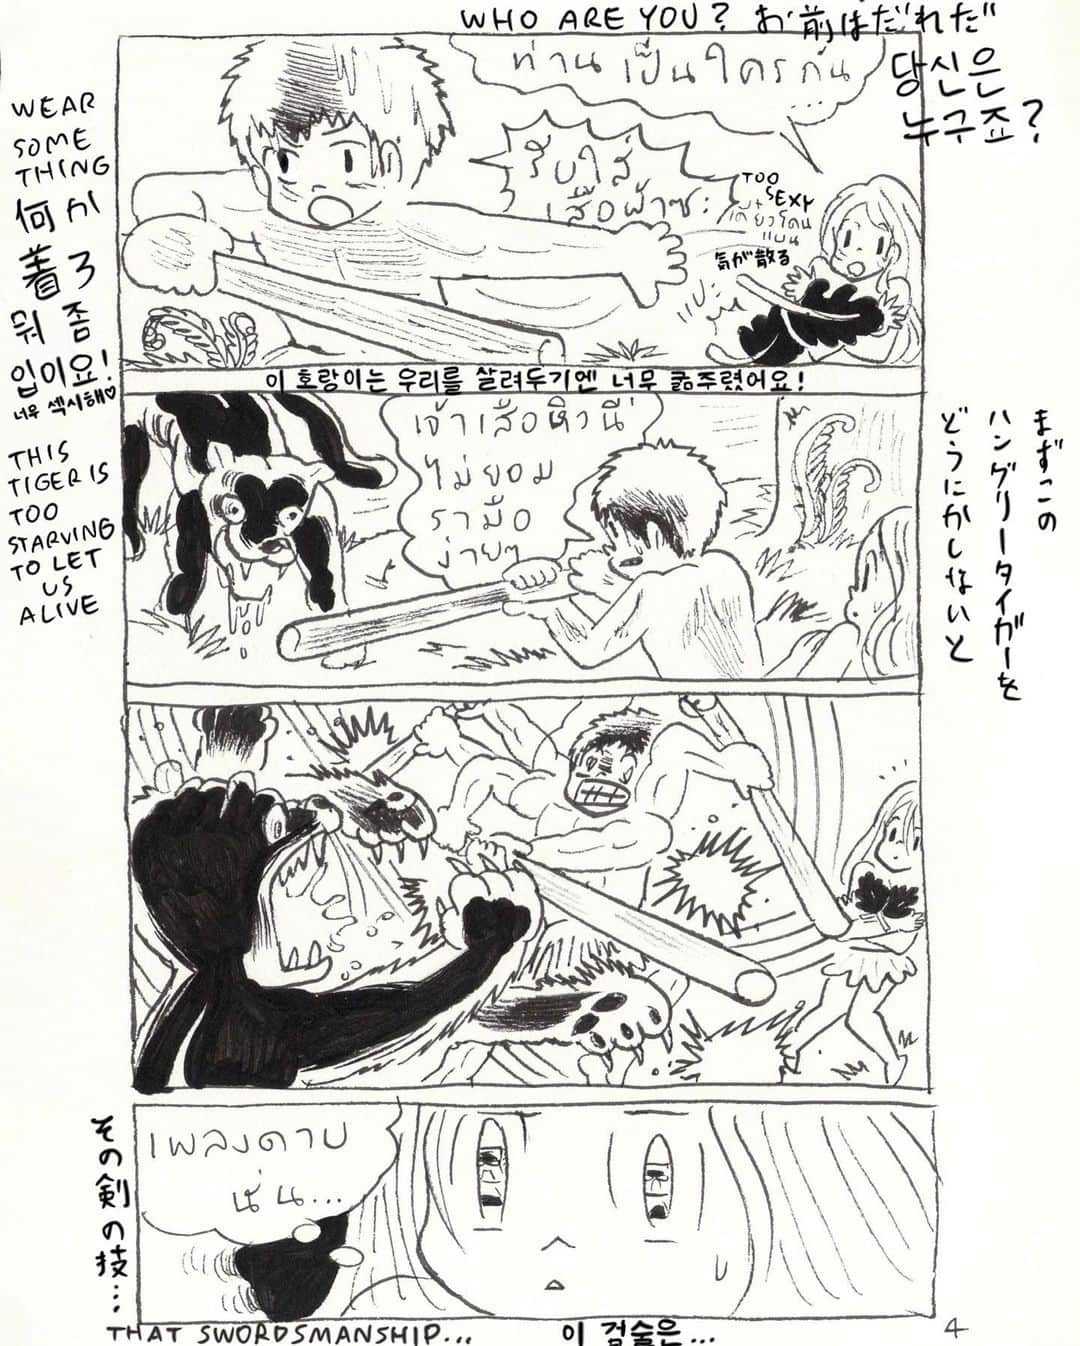 WHO ARE YOU? お前はだれだ
ท่านเป็นใครกัน...
당신은
누구죠?
WEAR
SOME
THING
何か
着ろ
뭐 좀
입이요!
너무 섹시해♡
รีบใส่
เสื้อผ้าซะ
TOO
SEXY
เดี๋ยวโดน
แบน
気が散る
이 호랑이는 우리를 살려두기엔 너무 굶주렸어요!
THIS
TIGER IS
TOO
STARVING
TO LET
US
ALIVE
เจ้าเสือหิวนี่
ไม่ยอม
รามือ
ง่ายๆ
まずこの
ハングリータイガーを
どうにかしないと
その剣の技…
เพลงดาบ
นั่น...
THAT SWORDSMANSHIP...
이 검술은...
4